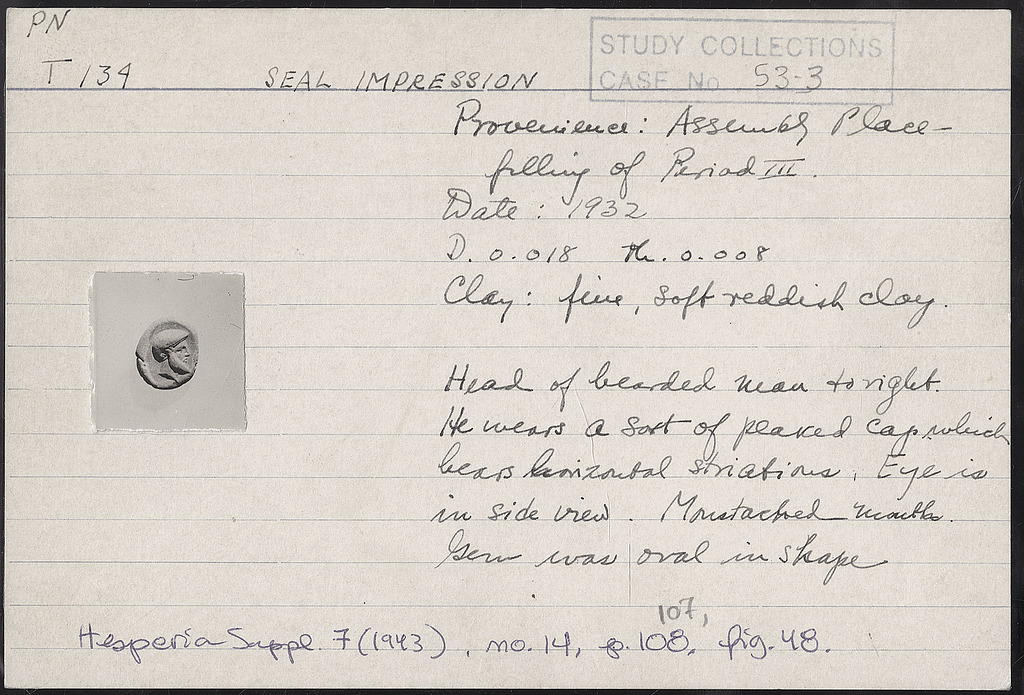 PN
T 134
SEAL IMPRESSION
STUDY COLLECTIONS
CASE No. 53-3
Provenience: Assembly Place-
filling of Period III.
Date: 1932
D. 0.018 Th. 0.008
Clay: fine, soft reddish clay.
Head of bearded man to right.
He wears a sort of peaked cap which
bears horizontal striations. Eye is
in side view. Moustached mouth.
Gem was oval in shape
107,
Hesperia Suppl. 7 (1943), no. 14, p. 108, fig. 48.